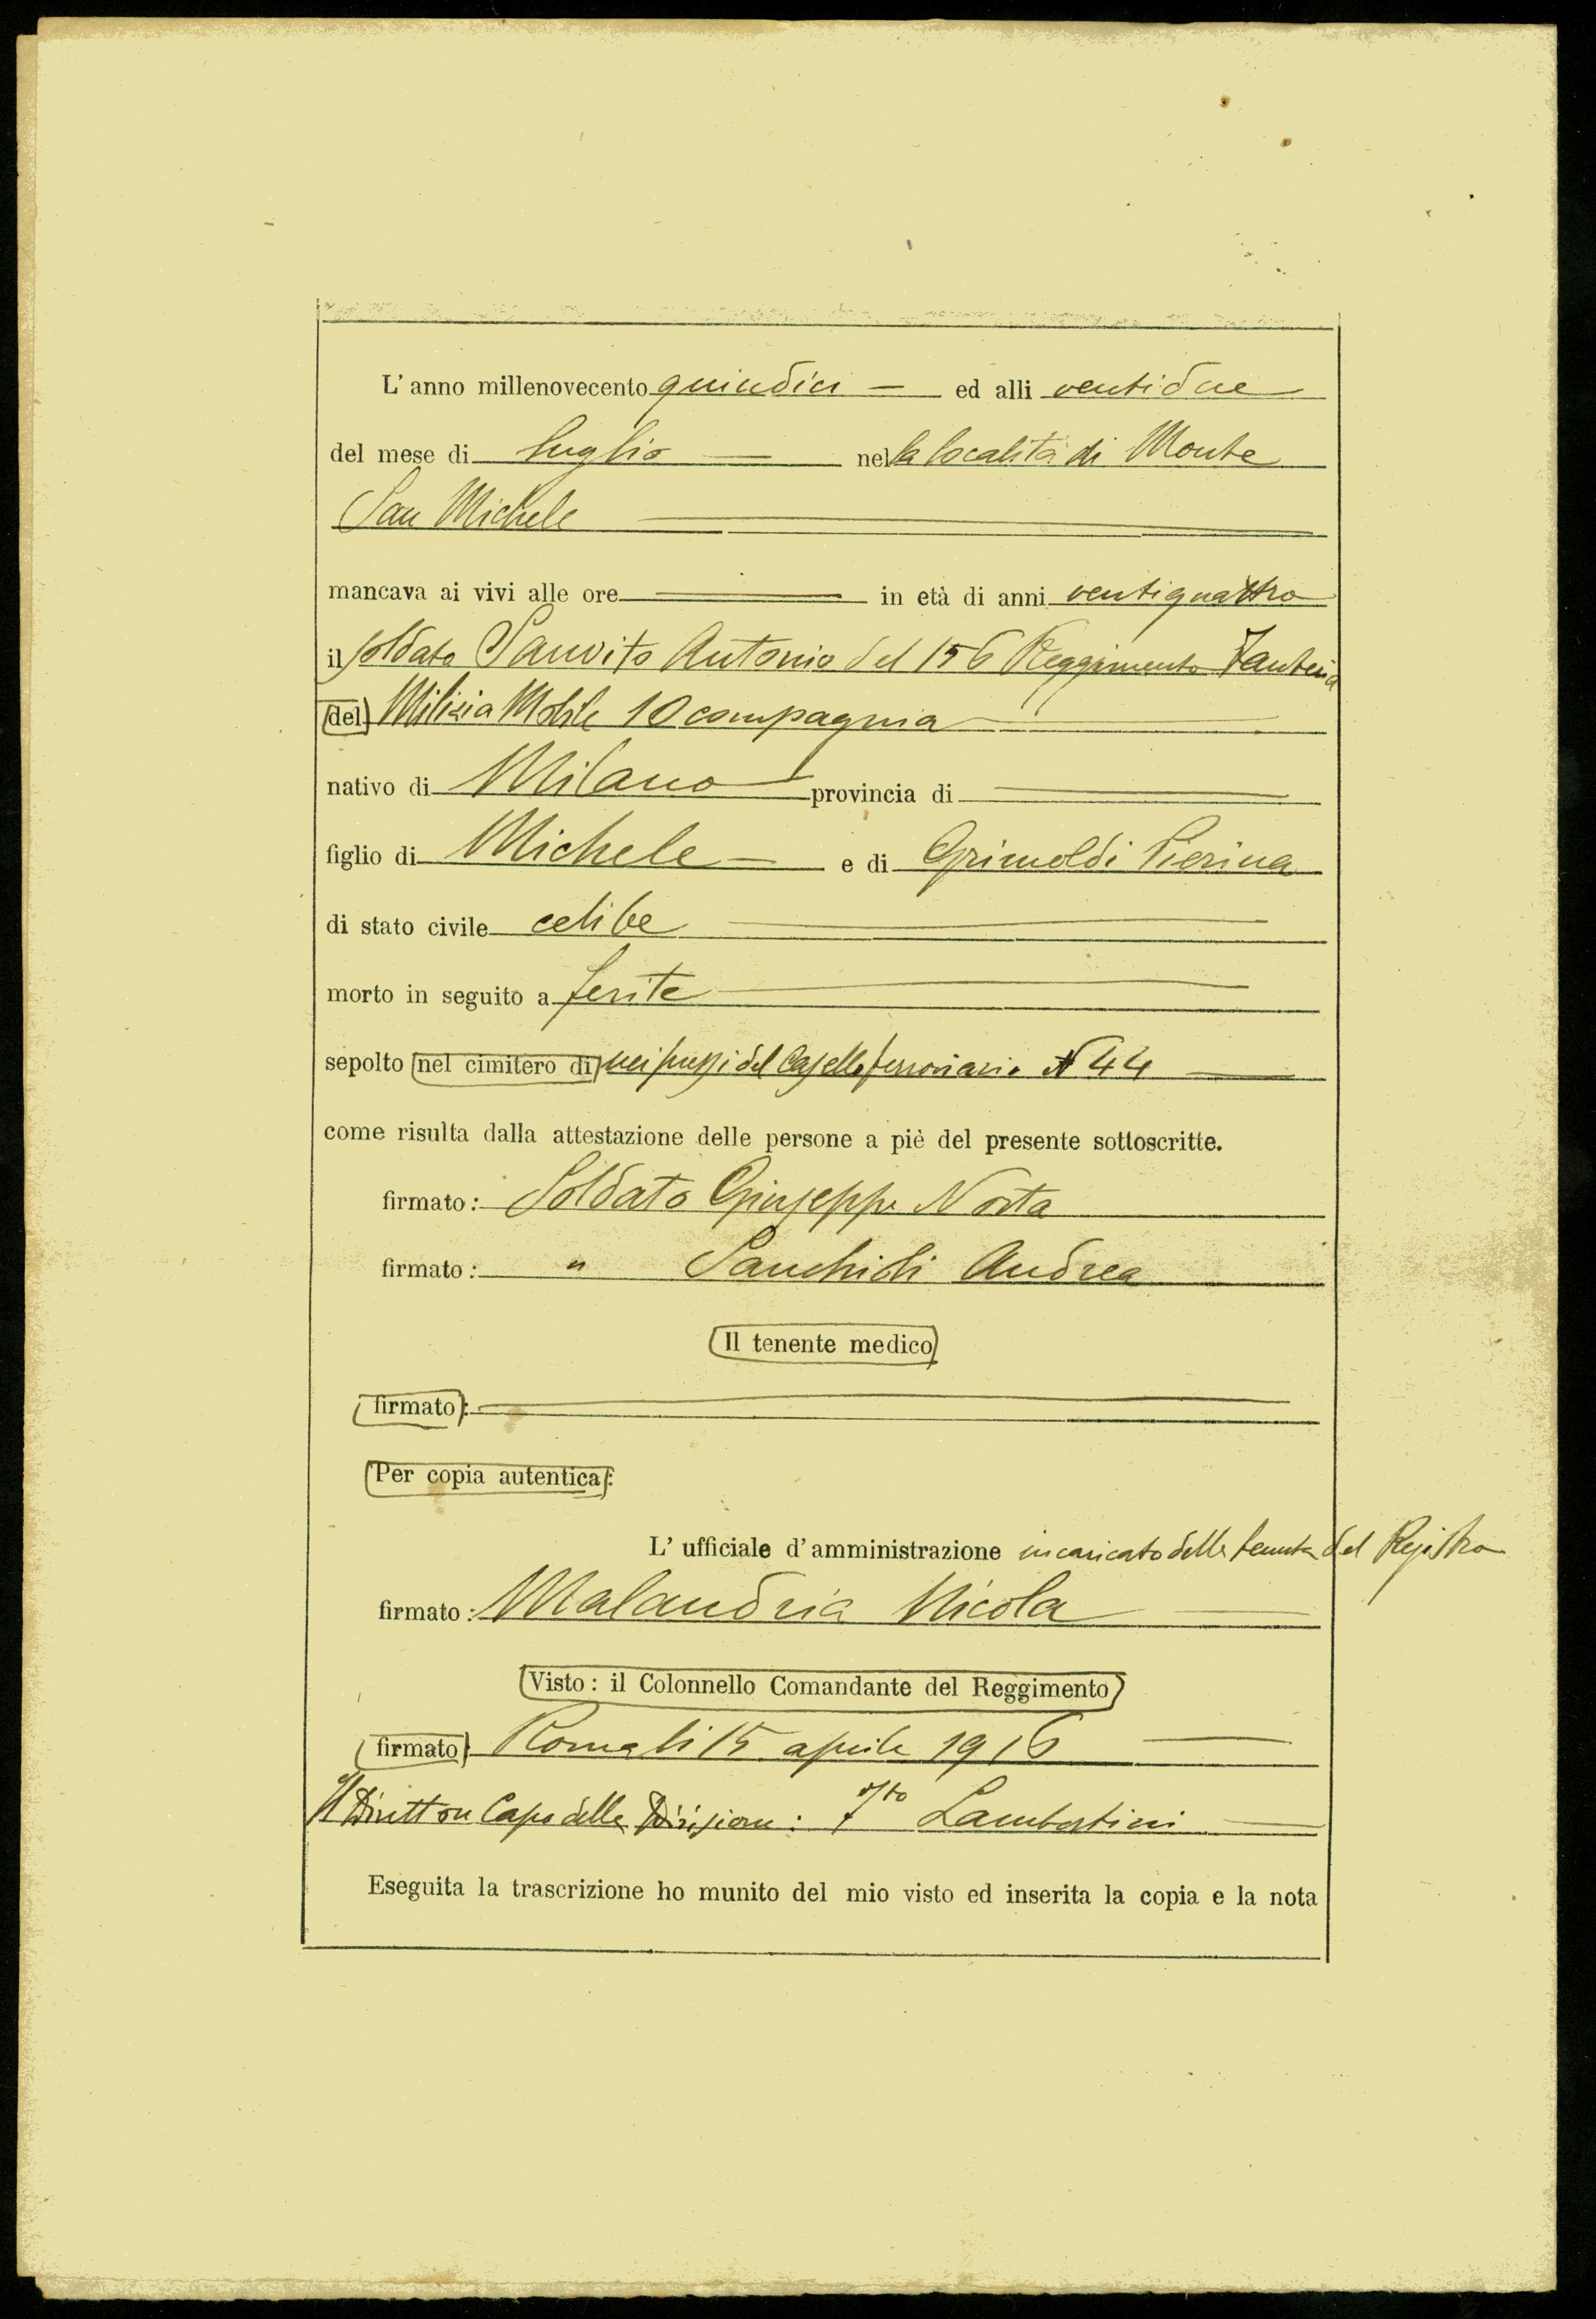 L' anno millenovecento quindici — ed alli ventidue
del mese di luglio — nella località di Monte
San Michele
mancava ai vivi alle ore — in età di anni ventiquattro
il soldato Sanvito Antonio del 156 Reggimento Fanteria
del Milizia Mobile 10 compagnia
nativo di Milano provincia di —
figlio di Michele — e di Grimoldi Pierina
di stato civile celibe
morto in seguito a ferite
sepolto nel cimitero di nei pressi del Casello ferroviario N 44 —
come risulta dalla attestazione delle persone a piè del presente sottoscritte.
firmato: Soldato Giuseppe Norta
firmato: " Andrea
Il tenente medico
firmato:
Per copia autentica:
L' ufficiale d' amministrazione incaricato della tenuta del Registro
firmato: Malandria Nicola —
Visto: il Colonnello Comandante del Reggimento
firmato: Roma li 15 aprile 1916 —
Il Direttore Capo della Divisione: fto Lambertini —
Eseguita la trascrizione ho munito del mio visto ed inserita la copia e la nota